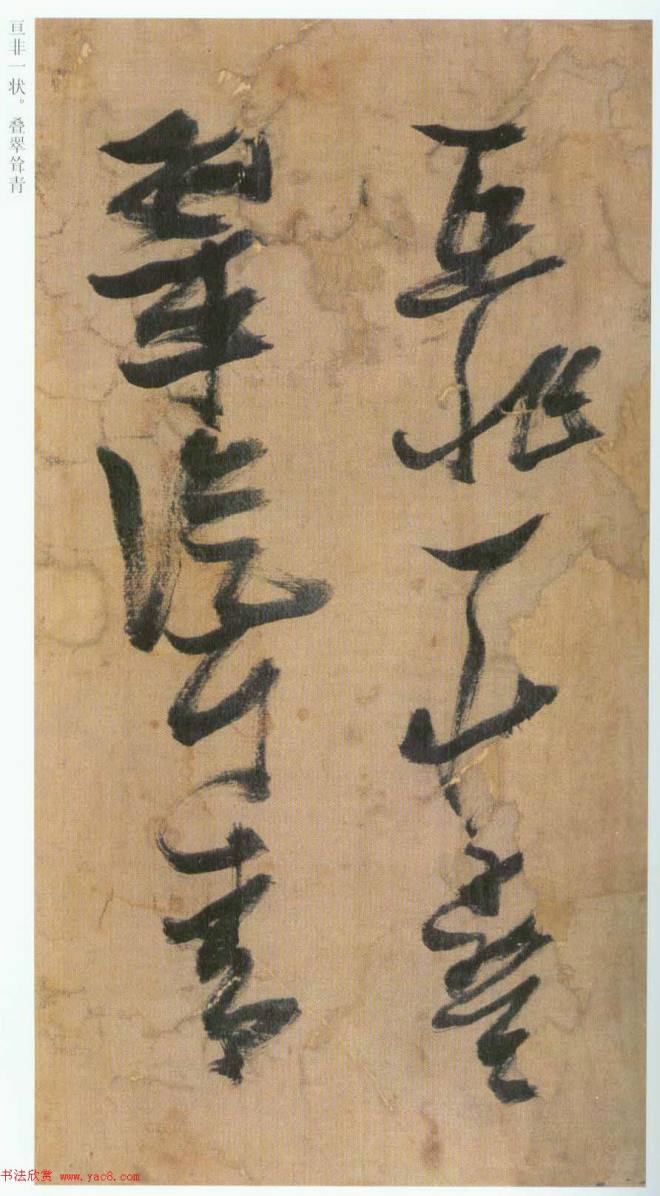 亘非一状。叠翠耸青
亘非一狀疊
翠聳青
书法欣赏 www.yac8.com